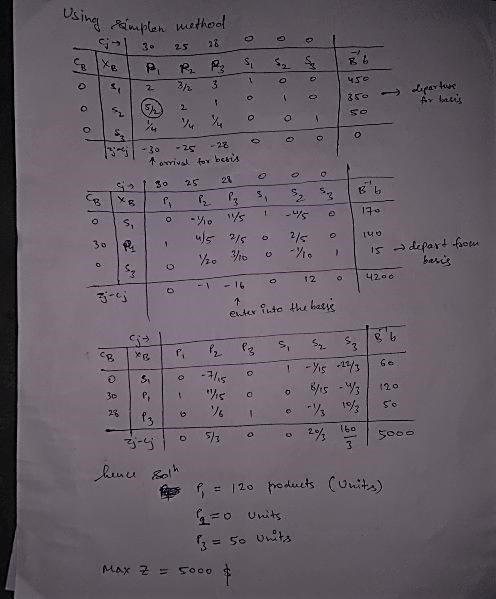 Using simplex method
Cj → 30 25 28 0 0 0
CB XB P1 P2 P3 S1 S2 S3 B⁻¹b
0 S1 2 3/2 3 1 0 0 450
0 S2 5/2 2 1 0 1 0 350 → departure for basis
0 S3 1/4 1/4 1/4 0 0 1 50
Zj-Cj -30 -25 -28 0 0 0 0
↑ arrival for basis
Cj → 30 25 28 0 0 0
CB XB P1 P2 P3 S1 S2 S3 B⁻¹b
0 S1 0 -1/10 11/5 1 -4/5 0 170
30 P1 1 4/5 2/5 0 2/5 0 140
0 S3 0 1/20 3/10 0 -1/10 1 15 → depart from basis
Zj-Cj 0 -1 -16 0 12 0 4200
↑
enter into the basis
Cj →
CB XB P1 P2 P3 S1 S2 S3 B⁻¹b
0 S1 0 -7/15 0 1 -1/15 -22/3 60
30 P1 1 11/15 0 0 8/15 -4/3 120
28 P3 0 1/6 1 0 -1/3 10/3 50
Zj-Cj 0 5/3 0 0 20/3 160/3 5000
hence Solⁿ
P1 = 120 products (Units)
P2 = 0 Units
P3 = 50 Units
Max Z = 5000 $